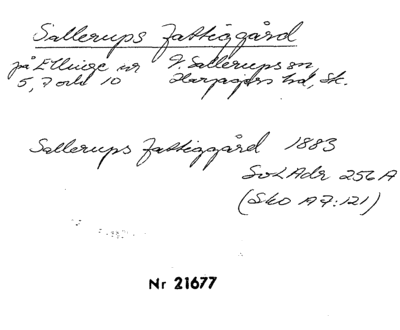 Sallerups fattiggård
på Ellinge nr V. Sallerups sn
5, 7 och 10 Harjagers hd, Sk.
Sallerups fattiggård 1883
SvLAdr 256 A
(Sko A 7:121)
Nr 21677